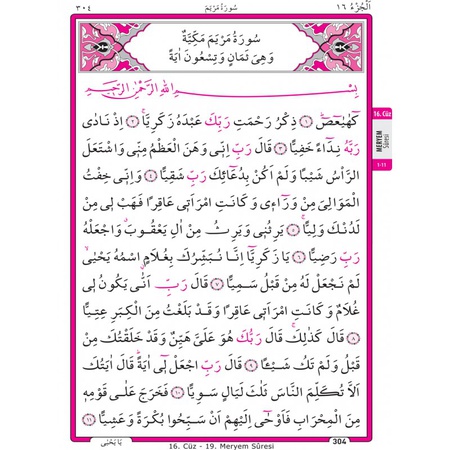 اَلْجُزْءُ ١٦
سُورَةُ مَرْيَمَ
٣٠٤
سُورَةُ مَرْيَمَ مَكِّيَّةٌ
وَهِىَ ثَمَانٍ وَتِسْعُونَ اٰيَةً
بِسْمِ اللّٰهِ الرَّحْمٰنِ الرَّحِيمِ
كٓهٰيٰعٓصٓ ﴿١﴾ ذِكْرُ رَحْمَتِ رَبِّكَ عَبْدَهُ زَكَرِيَّا ﴿٢﴾ اِذْ نَادٰى
رَبَّهُ نِدَٓاءً خَفِيًّا ﴿٣﴾ قَالَ رَبِّ اِنّٖى وَهَنَ الْعَظْمُ مِنّٖى وَاشْتَعَلَ
الرَّأْسُ شَيْبًا وَلَمْ اَكُنْ بِدُعَٓائِكَ رَبِّ شَقِيًّا ﴿٤﴾ وَاِنّٖى خِفْتُ
الْمَوَالِىَ مِنْ وَرَٓاءٖى وَكَانَتِ امْرَاَتٖى عَاقِرًا فَهَبْ لٖى مِنْ
لَدُنْكَ وَلِيًّا ﴿٥﴾ يَرِثُنٖى وَيَرِثُ مِنْ اٰلِ يَعْقُوبَ وَاجْعَلْهُ
رَبِّ رَضِيًّا ﴿٦﴾ يَا زَكَرِيَّٓا اِنَّا نُبَشِّرُكَ بِغُلَامٍ اسْمُهُ يَحْيٰى
لَمْ نَجْعَلْ لَهُ مِنْ قَبْلُ سَمِيًّا ﴿٧﴾ قَالَ رَبِّ اَنّٰى يَكُونُ لٖى
غُلَامٌ وَكَانَتِ امْرَاَتٖى عَاقِرًا وَقَدْ بَلَغْتُ مِنَ الْكِبَرِ عِتِيًّا
﴿٨﴾ قَالَ كَذٰلِكَ قَالَ رَبُّكَ هُوَ عَلَىَّ هَيِّنٌ وَقَدْ خَلَقْتُكَ مِنْ
قَبْلُ وَلَمْ تَكُ شَيْـًٔا ﴿٩﴾ قَالَ رَبِّ اجْعَلْ لٖى اٰيَةً قَالَ اٰيَتُكَ
اَلَّا تُكَلِّمَ النَّاسَ ثَلٰثَ لَيَالٍ سَوِيًّا ﴿١٠﴾ فَخَرَجَ عَلٰى قَوْمِهٖ
مِنَ الْمِحْرَابِ فَاَوْحٰٓى اِلَيْهِمْ اَنْ سَبِّحُوا بُكْرَةً وَعَشِيًّا ﴿١١﴾
يَا يَحْيٰى
16. Cüz - 19. Meryem Sûresi
304
16. Cüz
MERYEM
Sûresi
1-11